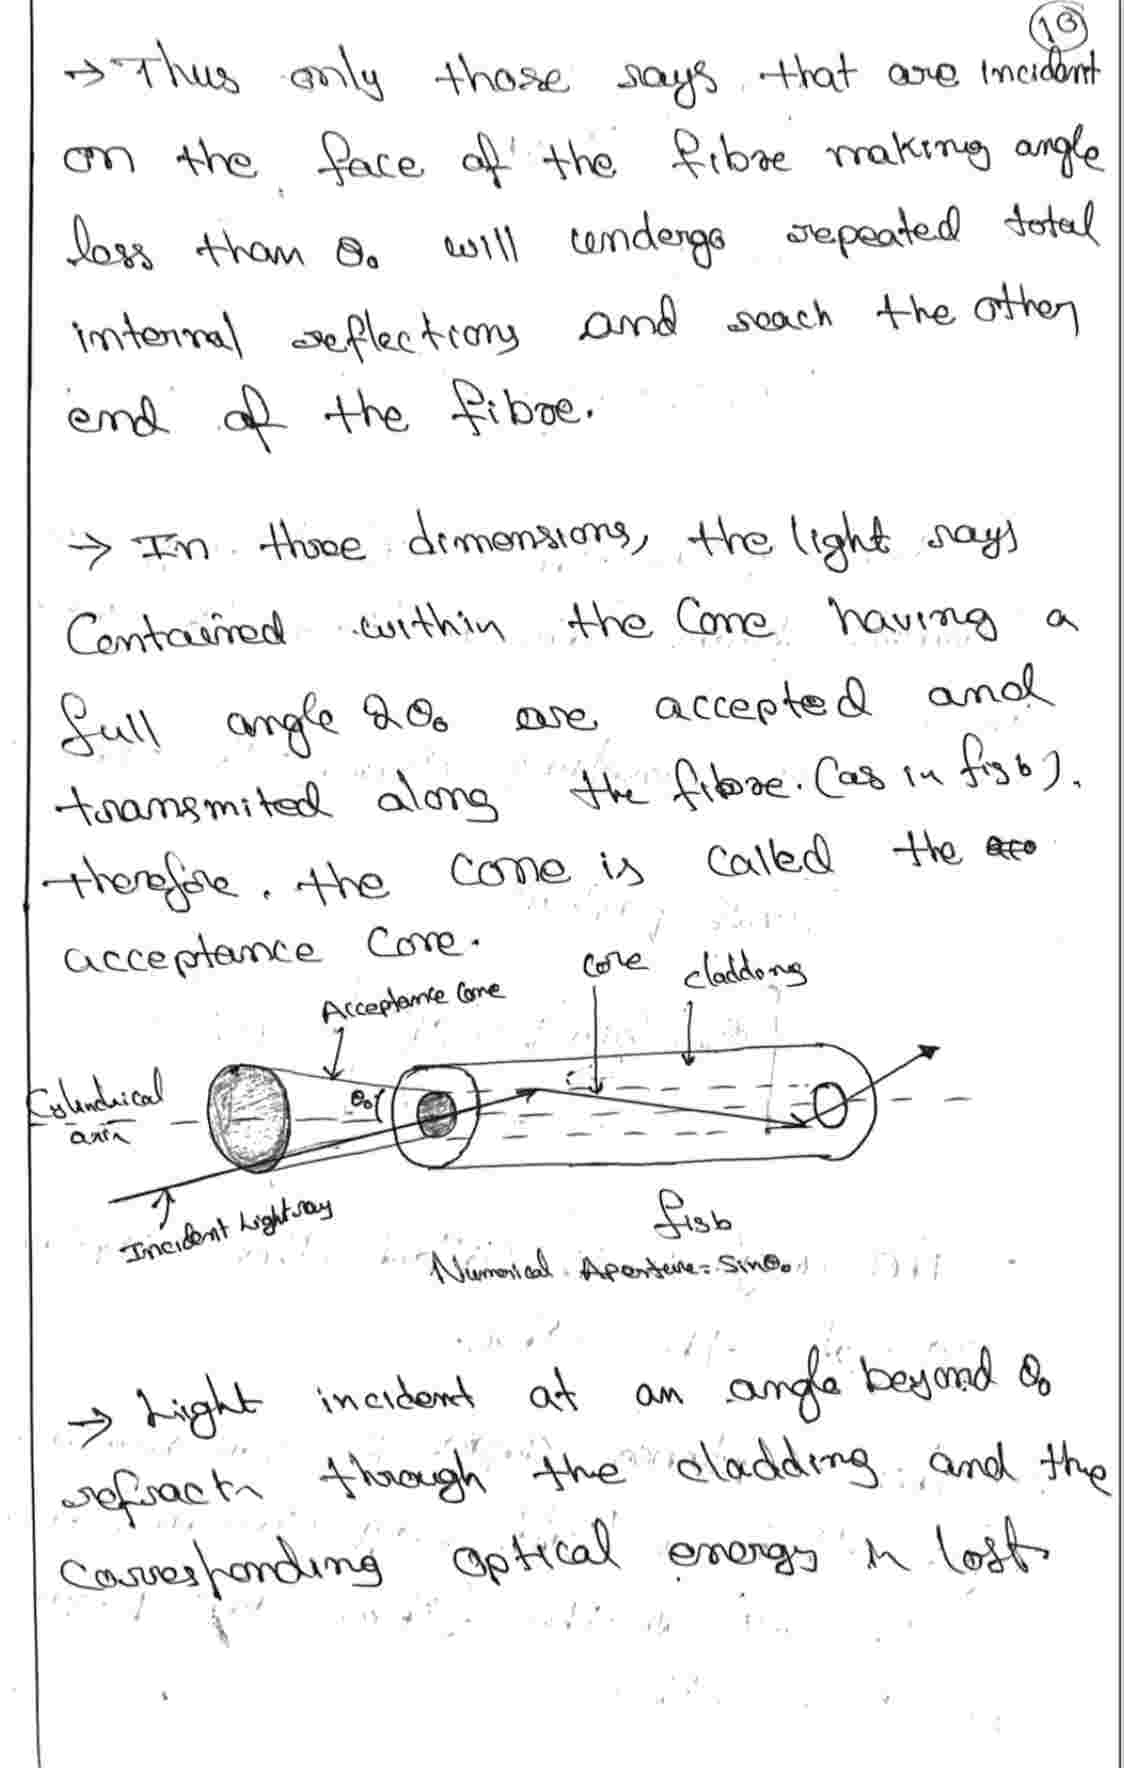 10
→ Thus only those rays that are incident
on the face of the fibre making angle
less than θ₀ will undergo repeated total
internal reflections and reach the other
end of the fibre.
→ In three dimensions, the light rays
Contained within the Cone having a
full angle 2θ₀ are accepted and
transmited along the fibre. (as in fig b).
therefore, the cone is called the
acceptance Cone.
core
cladding
Acceptance Cone
Cylindrical
axis
θ₀
Incident Light ray
fig b
Numerical Aperture = Sinθ₀
→ Light incident at an angle beyond θ₀
refracts through the cladding and the
Corresponding optical energy is lost.